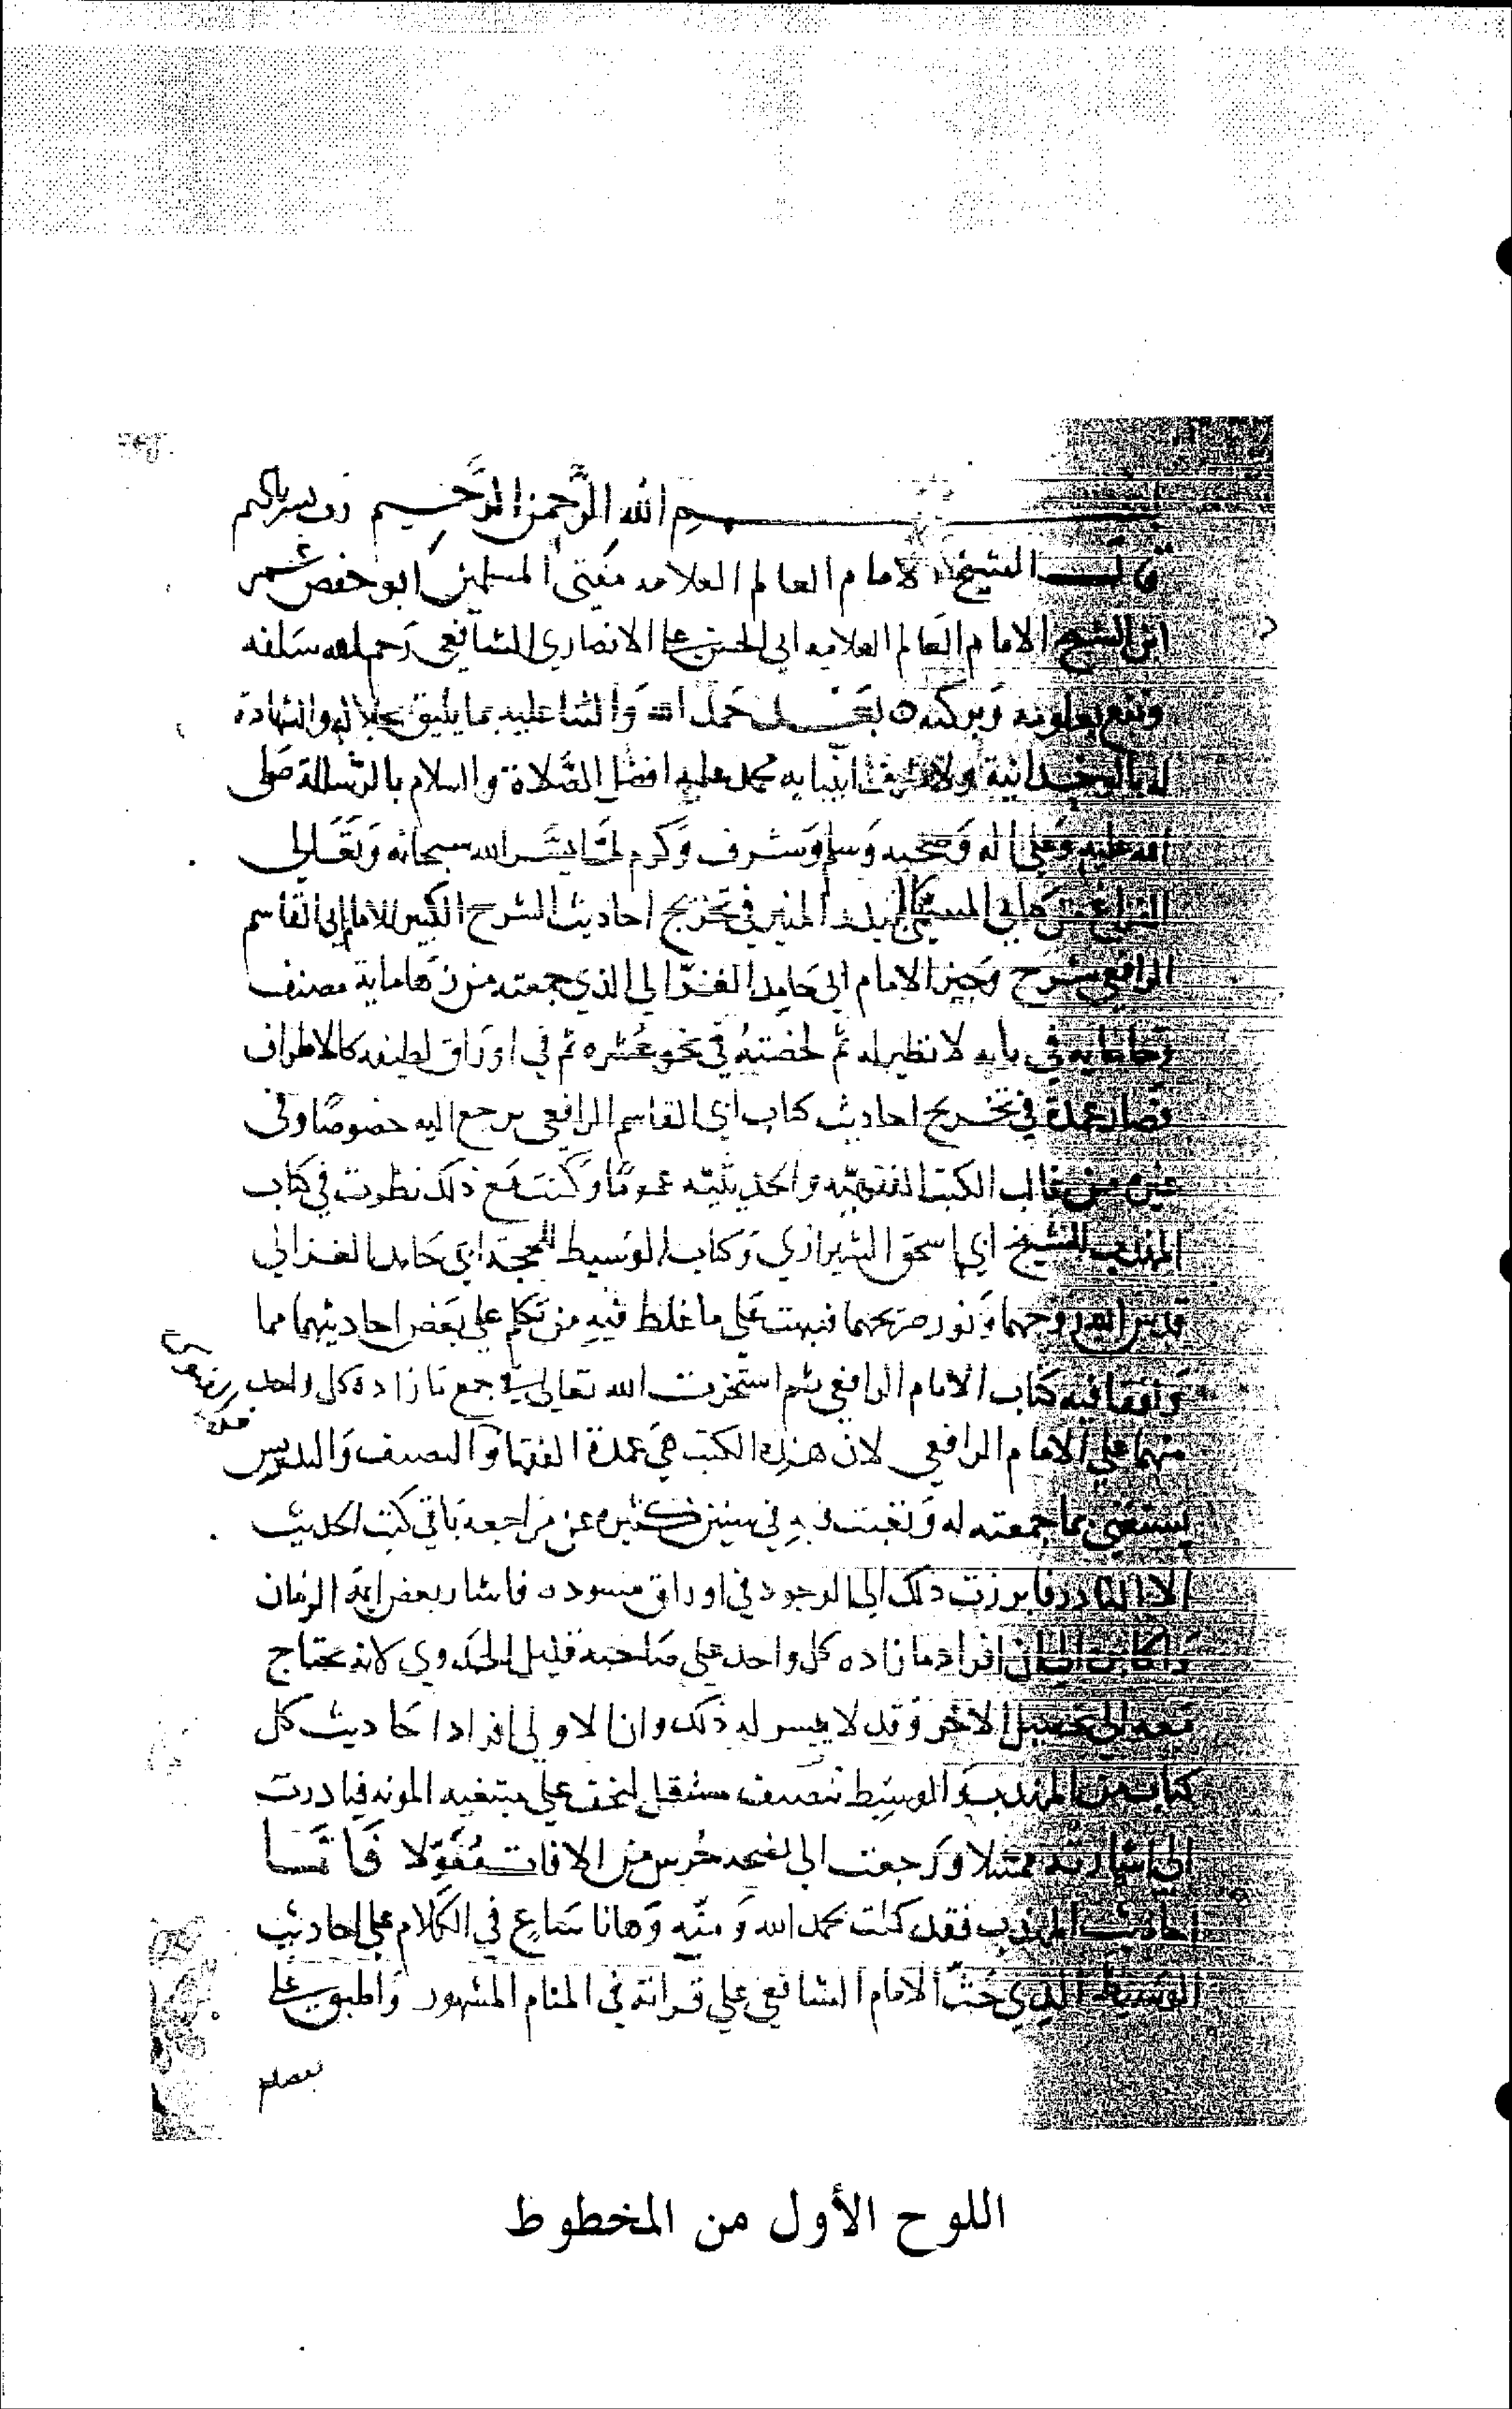 بسم الله الرحمن الرحيم رب يسر ياكريم
قال الشيخ الامام العالم العلامه مفتى المسلمين ابو حفص عمر
ابن الشيخ الامام العالم العلامه ابى الحسن على الانصاري الشافعى رحم الله سلفه
ونفع بعلومه وبركته بعد حمد الله والثنا عليه بما يليق بجلاله والشهادة
له بالوحدانية ولاشرف انبيايه محمد عليه افضل الصلاة والسلام بالرسالة صلى
الله عليه وعلى اله وصحبه وسلم وشرف وكرم لما يسر الله سبحانه وتعالى
الفراغ من كتابي المسمى بالبدر المنير في تخريج احاديث الشرح الكبير للامام ابي القاسم
الرافعي شرح وجيز الامام ابى حامد الغزالي الذي جمعته من زهاماية مصنف
وجا بحمد في بابه لا نظير له ثم لخصته في نحو عشره ثم في اوراق لطيفه كالاطراف
فصار عمدة في تخريج احاديث كتاب ابي القاسم الرافعي يرجع اليه خصوصا وفى
غيره من غالب الكتب الفقهيه والحديثيه عموما وكنت مع ذلك نظرت في كتاب
المهذب للشيخ ابي اسحق الشيرازي وكتاب الوسيط للحجة ابي حامد الغزالي
قدس الله روحهما ونور ضريحهما فنبهت على ما غلط فيه من تكلم على بعض احاديثهما مما
وافقا فيه كتاب الامام الرافعى ثم استخرت الله تعالى في جمع ما زاده كل واحد
منهما على الامام الرافعي لان هذه الكتب هي عمدة الفقها والتصنيف والتدريس
ليستغنى بما جمعته له وتعبت فيه في سنين كثيره عن مراجعة باقي كتب الحديث
الا النادر فابرزت ذلك الى الوجود في اوراق مسوده فاشار بعض ايمة الزمان
افراد ما زاده كل واحد على صاحبه قليل الجدوي لانه يحتاج
معه الى تحصيل الاخر وقد لا يتيسر له ذلك وان الاولى افراد احاديث كل
كتاب من المهذب والوسيط بتصنيف مستقل لتخف على مبتغيه المونه فبادرت
الى اشارته ممتثلا ورجعت الى نصحه حرس من الافات مقولا فاما
احاديث المهذب فقد كملت بحمد الله ومنه وهانا شارع في الكلام على احاديث
الوسيط الذي حث الامام الشافعي على قراته في المنام المشهور والمبوب على
اللوح الأول من المخطوط